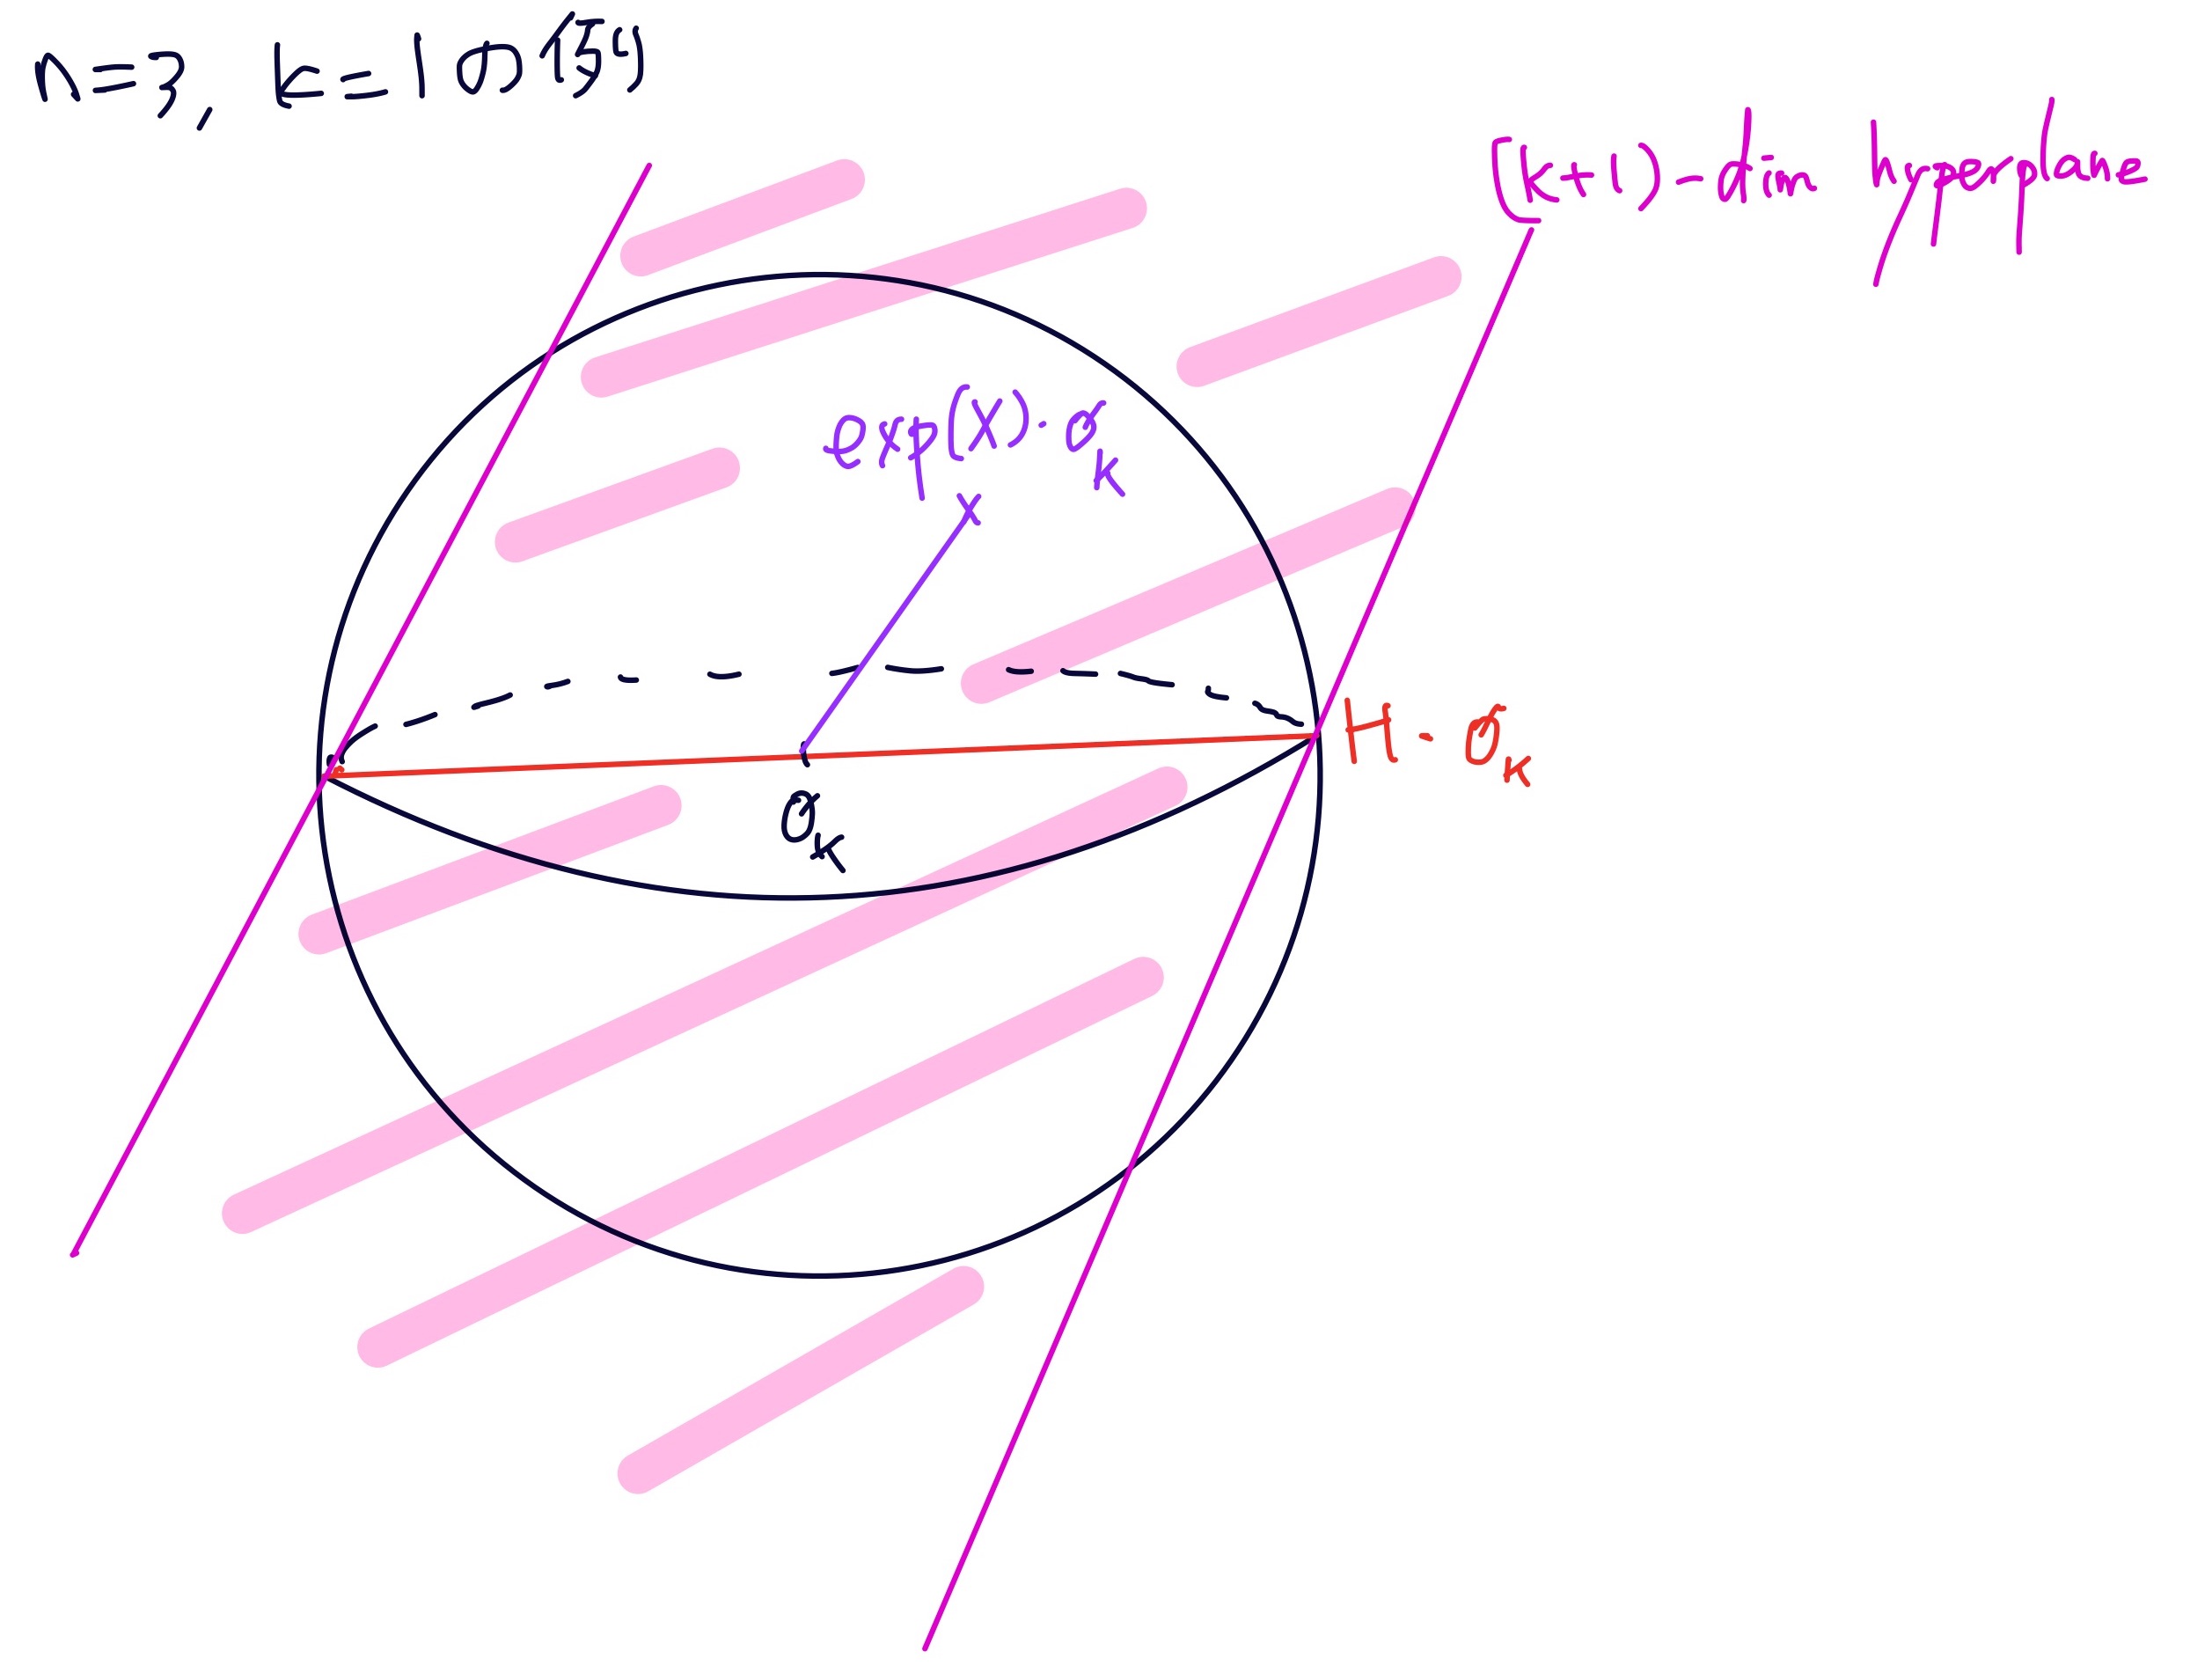 n=3, k=1の例
(k+1)-dim hyperplane
exp(X)・o_K
H・o_K
o_K